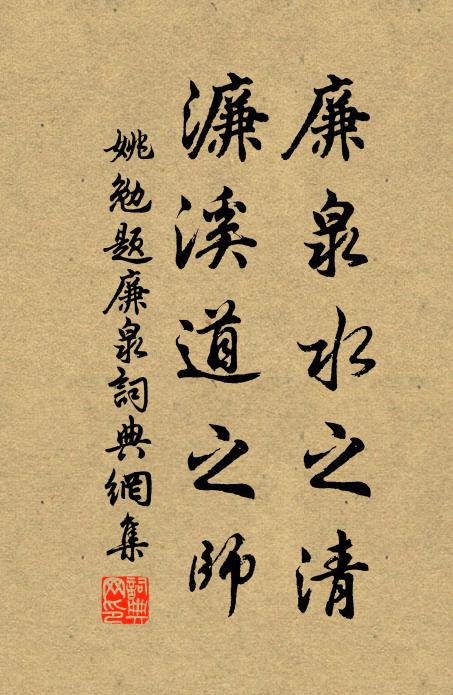 廉泉水之清
濂溪道之師
姚勉題廉泉詞典網集
詞典網印